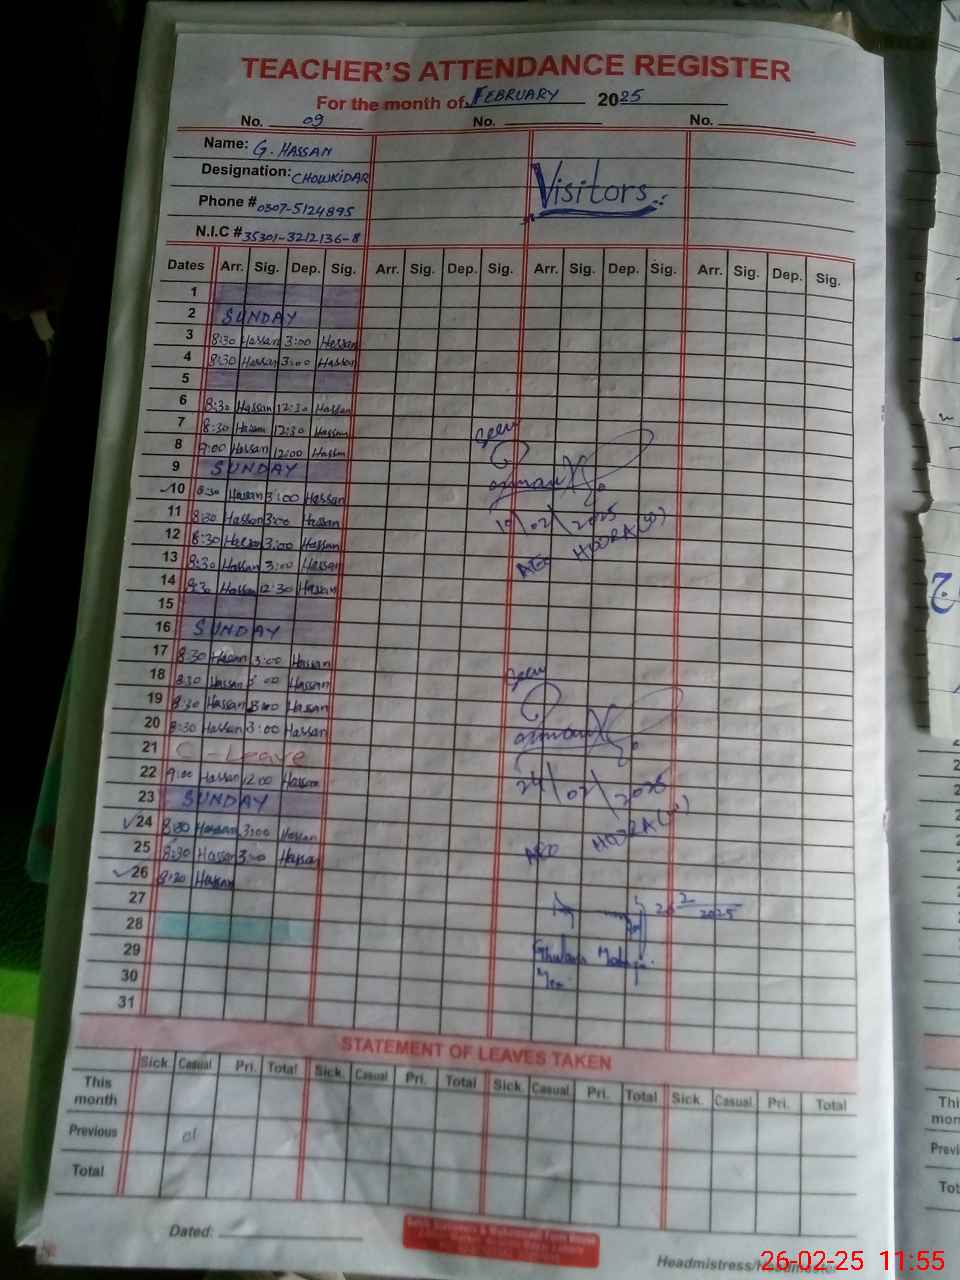 TEACHER'S ATTENDANCE REGISTER
For the month of FEBRUARY 2025
No. 09 No. No.
Name: G. HASSAN
Designation: CHOWKIDAR
Phone # 0307-5124895
N.I.C # 35301-3212136-8
Visitors
Dates Arr. Sig. Dep. Sig. Arr. Sig. Dep. Sig. Arr. Sig. Dep. Sig. Arr. Sig. Dep. Sig.
1
2 SUNDAY
3 8:30 Hassan 3:00 Hassan
4 8:30 Hassan 3:00 Hassan
5
6 8:30 Hassan 12:30 Hassan
7 8:30 Hassan 12:30 Hassan
8 9:00 Hassan 12:00 Hassan
9 SUNDAY
10 8:30 Hassan 3:00 Hassan
11 8:30 Hassan 3:00 Hassan
12 8:30 Hassan 3:00 Hassan
13 8:30 Hassan 3:00 Hassan
14 8:30 Hassan 12:30 Hassan
15
16 SUNDAY
17 8:30 Hassan 3:00 Hassan
18 8:30 Hassan 3:00 Hassan
19 8:30 Hassan 3:00 Hassan
20 8:30 Hassan 3:00 Hassan
21 C - Leave
22 9:00 Hassan 12:00 Hassan
23 SUNDAY
24 8:30 Hassan 3:00 Hassan
25 8:30 Hassan 3:00 Hassan
26 8:20 Hassan
27
28
29
30
31
Seen
10/02/2025
AEO
Seen
24/02/2025
AEO
26 2 2025
Ghulam
STATEMENT OF LEAVES TAKEN
Sick. Casual Pri. Total Sick. Casual Pri. Total Sick. Casual Pri. Total Sick. Casual Pri. Total
This month
Previous 01
Total
Dated:
Headmistress/Headmaster
26-02-25 11:55